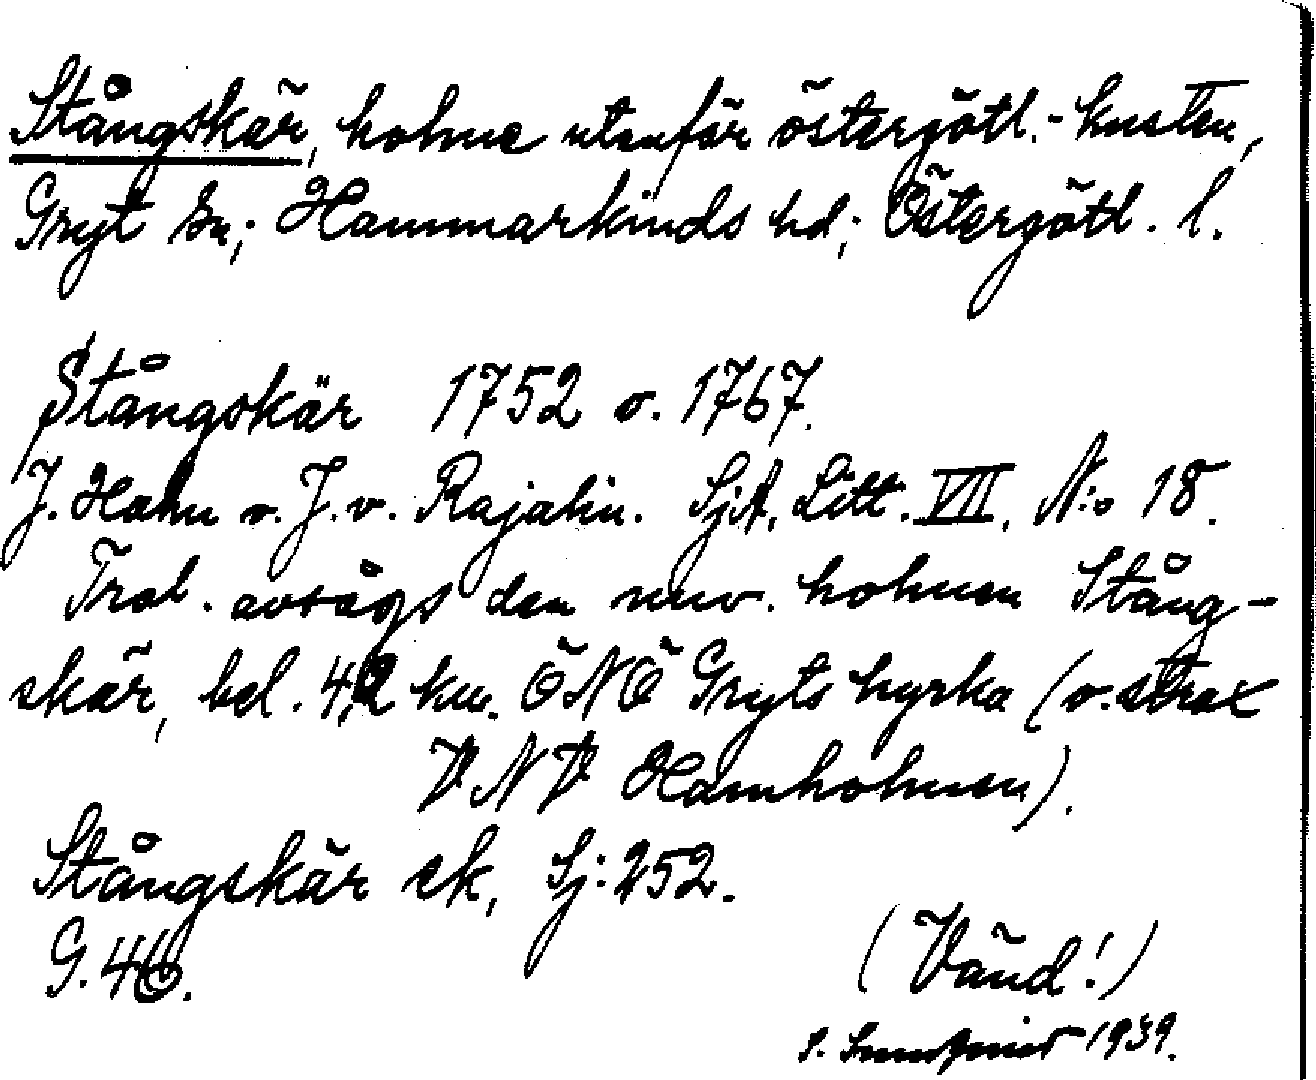 Stångskär, holme utanför östergötl.-kusten,
Gryt sn; Hammarkinds hd; Östergötl. l.
Stångskär 1752 o. 1767.
J. Hahn o. J. v. Rajalin. SjA, Litt. VII, N:o 18.
Trol. avsågs den nuv. holmen Stång-
skär, bel. 4,2 km. ÖNÖ Gryts kyrka (o. strax
VNV Hamholmen).
Stångskär sk, Sj: 252.
G. 46.
(Vänd!)
S. 1939.